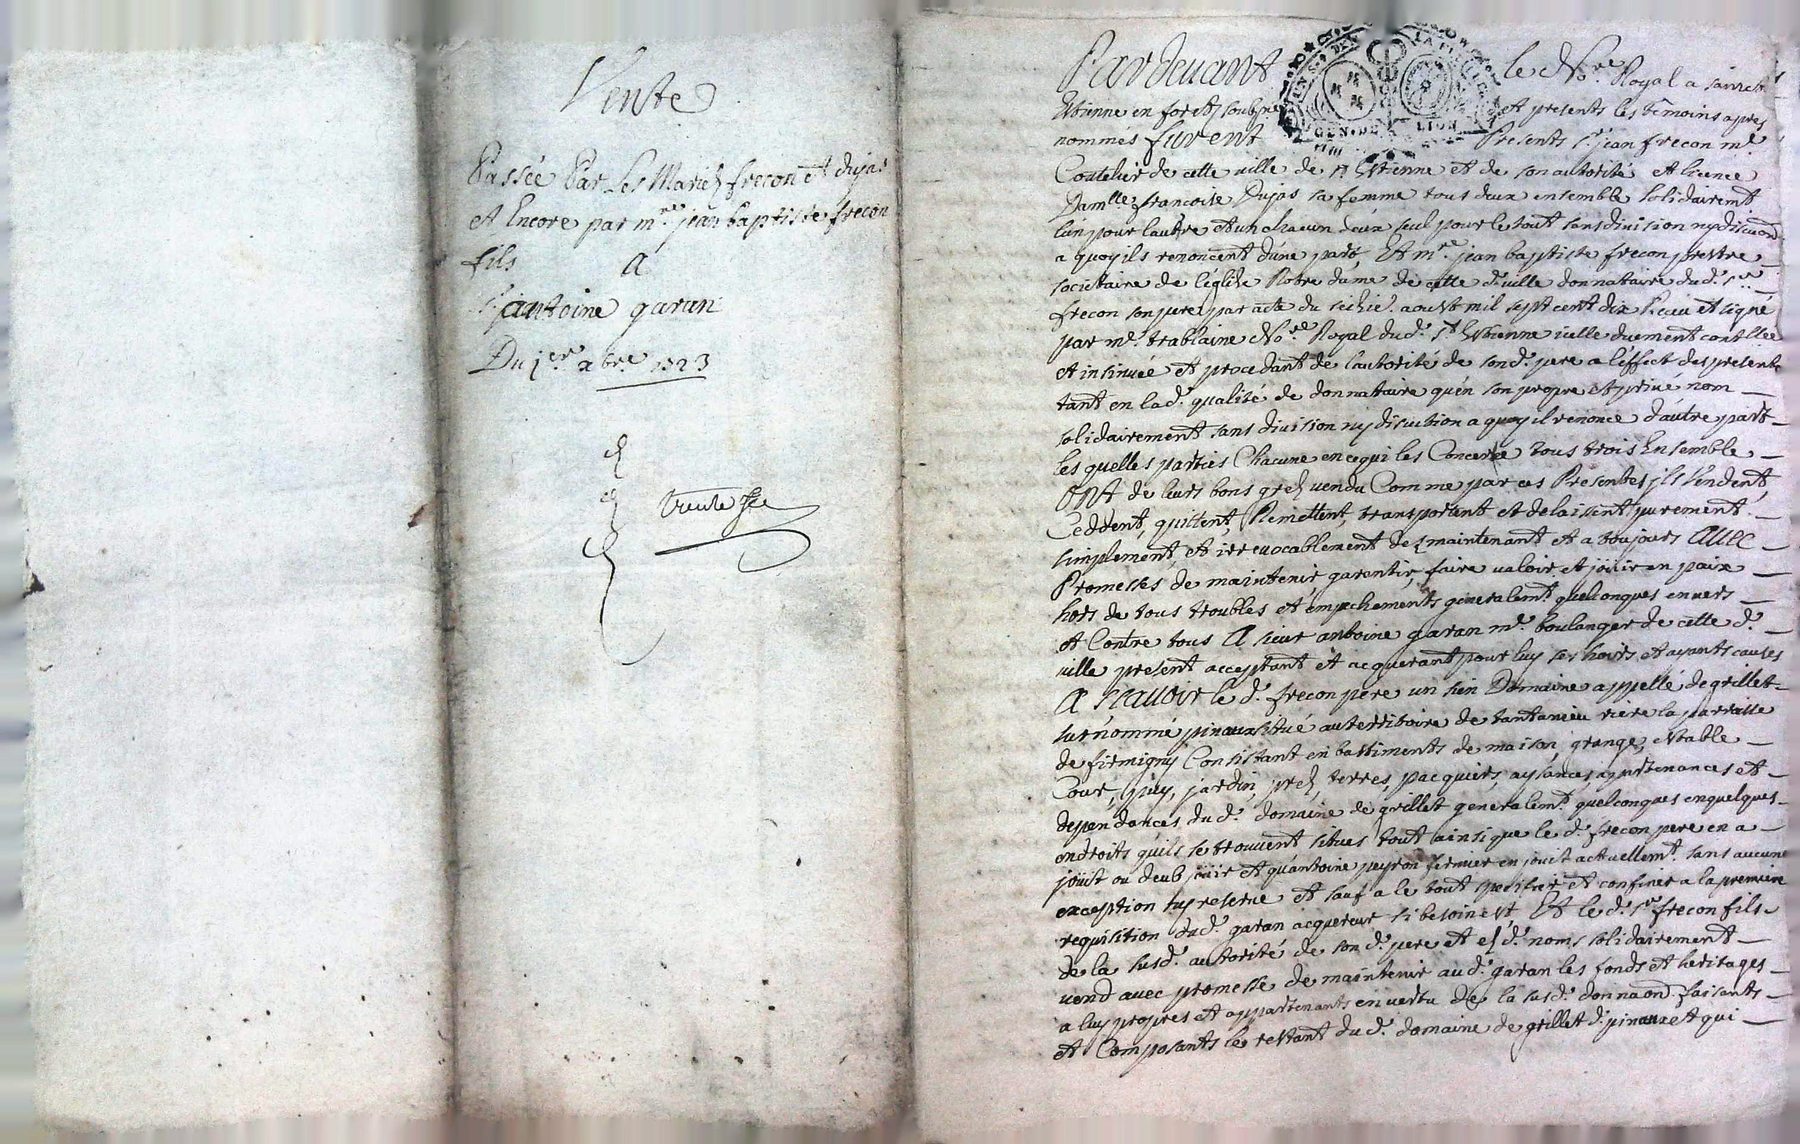 Vente
Passée Par Les Mariez frecon et dujas
et Encore par mre jean baptiste frecon
fils A
sr antoine garan
Du 1er xbre 1723
trente
Pardevant le Nore Royal a sainct
Estienne en forest soubsné et presents les temoins apres
nommés furent Presents sr jean frecon md
Coutelier de cette ville de st Estienne et de son autorité et licence
Damlle francoise Dujas sa femme tous deux ensemble solidairemt
lun pour lautre et un chacun deux seul pour le tout sans division ny discuon
a quoy ils renoncent d'une part, Et mre jean baptiste frecon prestre
societaire de l'église Notre dame de cette d. ville donnataire dud. sr
frecon son pere par acte du aoust mil sept cent dix Receu et signé
par me trablaine Nore Royal dud. st Estienne icelle duement contllee
et insinuée et procedant de l'autorité de sond. pere a l'effect des presentes
tant en lad. qualité de donnataire qu'en son propre et privé nom
solidairement sans division ny discution a quoy il renonce d'autre part
les quelles parties Chacune en ce qui les Concerne tous trois Ensemble
Ont de leurs bons grez vendu Comme par ces Presentes ils Vendent,
Ceddent, quittent, Remettent, transportent et delaissent purement
simplement, et irrevocablement dez maintenant et a toujours Avec
Promesses de maintenir, garentir, faire valoir et joüir en paix
hors de tous troubles et empechements generalemt quelconques envers
et Contre tous A sieur antoine garan md boulanger de cette d.
ville present acceptant et acquerant pour luy ses hoirs et ayants causes
A Scavoir le d. frecon pere un sien Domaine appellé de grillet
surnommé pinaux situé au territoire de tantanieu riere la parroisse
de firmigny Consistant en bastiments de maison, grange, estable
Cour, puy, jardin, prez, terres, pacquiers, aysances, apartenances et
dependances dud. domaine de grillet generalemt quelconques en quelques
endroits quils se trouvent situes tout ainsi que le d. frecon pere en a
joüit ou deub joüir et qu'antoine peyron fermier en jouit actuellemt sans aucune
exception ny reserve et sauf a le tout specifier et confiner a la premiere
requisition dud. garan acquereur si besoin est, Et le d. sr frecon fils
de la susd. autorité de son d. pere et ez d. noms solidairement
vend avec promesse de maintenir aud. garan les fonds et heritages
a luy propres et appartenants en vertu de la susd. donnaon faisants
et Composants le restant dud. domaine de grillet d. pinaux et qui
GEN. DE LION